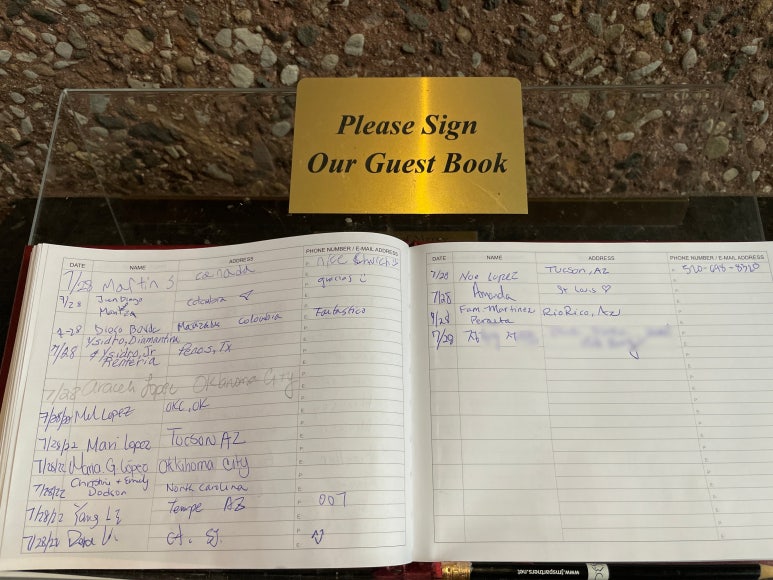 Please Sign
Our Guest Book
DATE NAME ADDRESS PHONE NUMBER / E-MAIL ADDRESS
7/28 Martin S Canada nice church
7/28 Juan Diego Colombia gracias
Maritza
Diego Manizales Colombia Fantastico
Ysidro, Diamantina
7/28 & Ysidro, Jr Penos, Tx
Renteria
7/28 Araceli Lopez Oklahoma City
7/28/22 Mel Lopez OKC, OK
7/28/22 Mari Lopez Tucson AZ
7/28/22 Maria G. López Oklahoma City
7/28/22 Christine + Emily North Carolina
Dodson
7/28/22 Yang Li Tempe AZ 007
7/28/22
DATE NAME ADDRESS PHONE NUMBER / E-MAIL ADDRESS
7/28 Noe Lopez Tucson, AZ
7/28 Amanda St Louis
7/28 Fam. Martinez Rio Rico, Az
Peralta
7/28
www.jmspartners.net